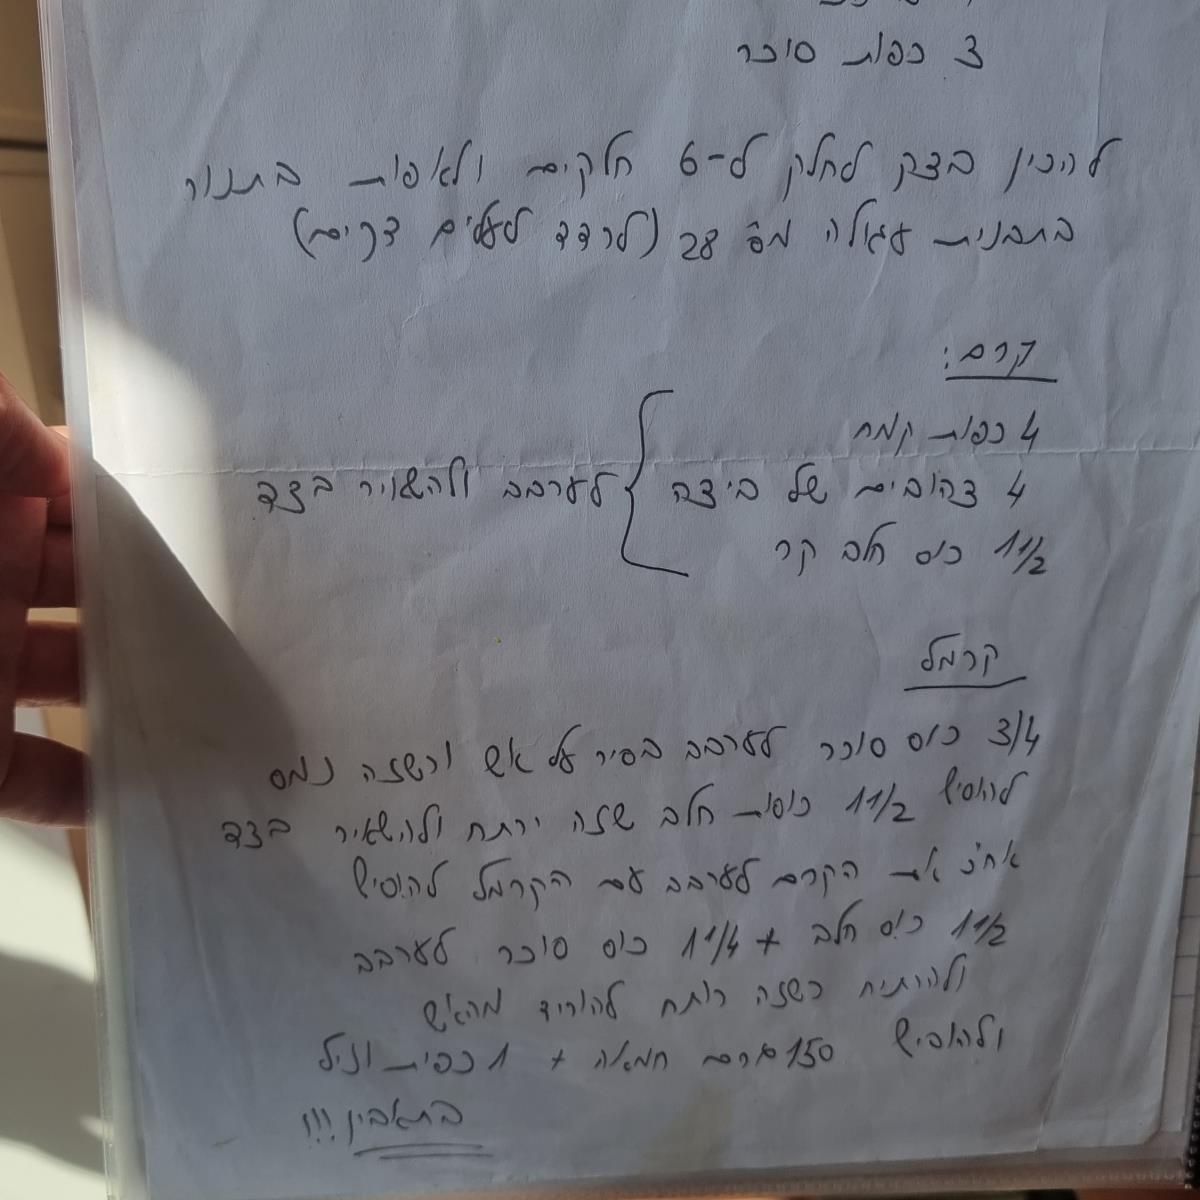 3 כפות סוכר
להכין בצק לחלק ל-6 חלקים ולאפות בתנור
בתבנית עגולה מס' 28 (לרדד לעלים דקים)
קרם:
4 כפות קמח
4 צהובים של ביצה
1 1/2 כוס חלב קר
לערבב ולהשאיר בצד
קרמל
3/4 כוס סוכר לערבב בסיר על אש וכשזה נמס
להוסיף 1 1/2 כוסות חלב שזה ירתח ולהשאיר בצד
אח"כ את הקרם לערבב עם הקרמל להוסיף
1 1/2 כוס חלב + 1 1/4 כוס סוכר לערבב
ולהרתיח כשזה רותח להוריד מהאש
ולהוסיף 150 גרם חמאה + 1 כפית וניל
בתאבון!!!